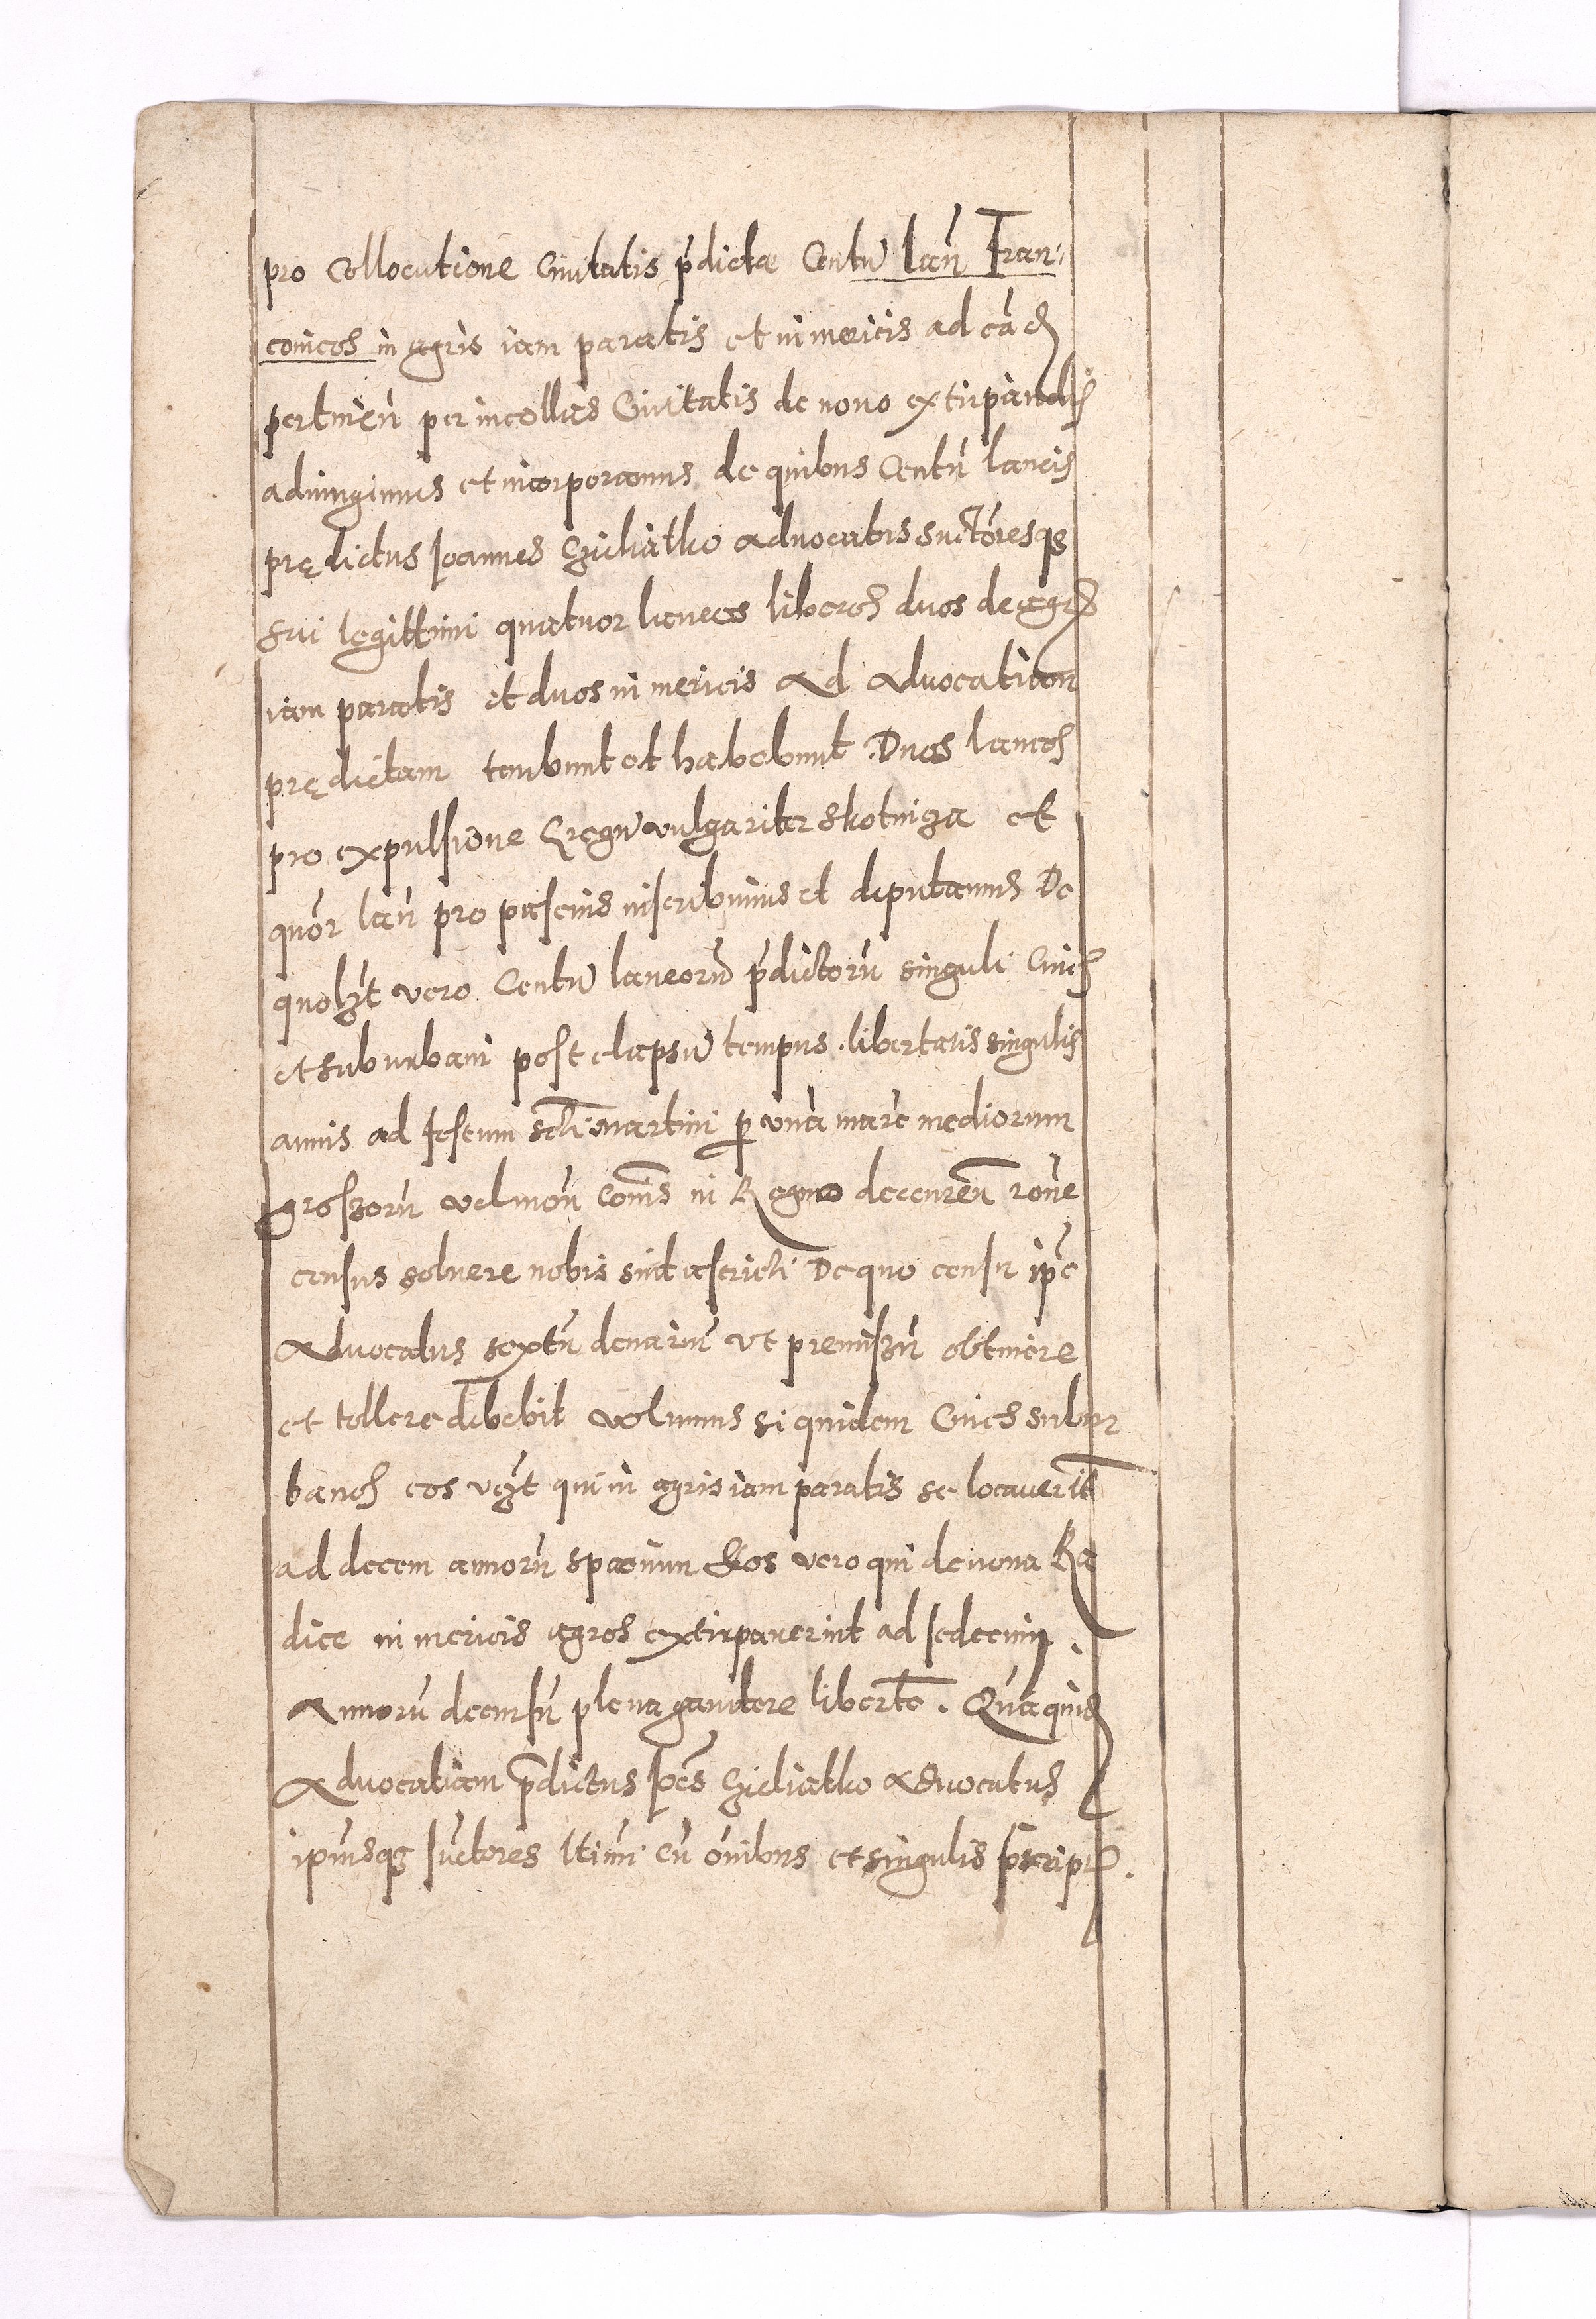 pro Collocutione Civitatis p̄dictæ Centū lan̄ Fran-
conicos in agris iam paratis et in mericis ad eā d̄
pertinen̄ per incollas Civitatis de novo extirpandis
adiungimus et incorporamus de quibus Centū laneis
prędictus Joannes Szieliatko advocatus suctōresq3
sui legittimi quatuor laneos liberos duos de agris
iam paratis et duos in mericis Ad Advocatiam
prędictam tenebunt et habebunt Duos laneos
pro expulsione Gregū vulgariter skotnicza et
quōr lan̄ pro pascuis inscribimus et deputamus De
quolȝt vero Centū laneorū p̄dictorū singuli Cives
et suburbani post elapsū tempus libertatis singulis
annis ad festum scti Martini p̱ unā marc̄ mediorum
groszorū vel mon̄ Com̄s in Regno decurren̄ rōne
census solvere nobis sint ascricti De quo censu ip̄e
Advocatus sextū denariū ut premiszū obtinere
et tollere debebit volumus siquidem Cives subur
banos eos vȝt qui in agris iam paratis se locaverīt
ad decem annorū spacium Eos vero qui de nova Ra
dice in mericis agros extirpaverint ad sedecim
Annorū decursū plena gaudere libertē. Quāquid̄
Advocatiam p̄dictus Joēs Szieliatko Advocatus
ipiusq3 suc̄tores ltimi cū ōnibus et singulis sp̄rascriptis.